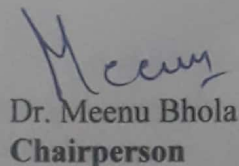 Meenu
Dr. Meenu Bhola
Chairperson